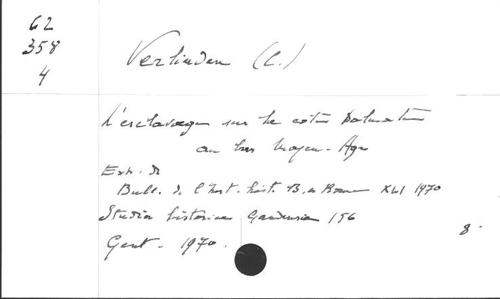 62
358
4
Verlinden (C.)
L'esclavage sur la côte Dalmate
au bas Moyen-Age
Extr. de
Bull. de l'Inst. hist. B. de Rome XLI 1970
Studia historica Gandensia 156
Gent - 1970.
8°